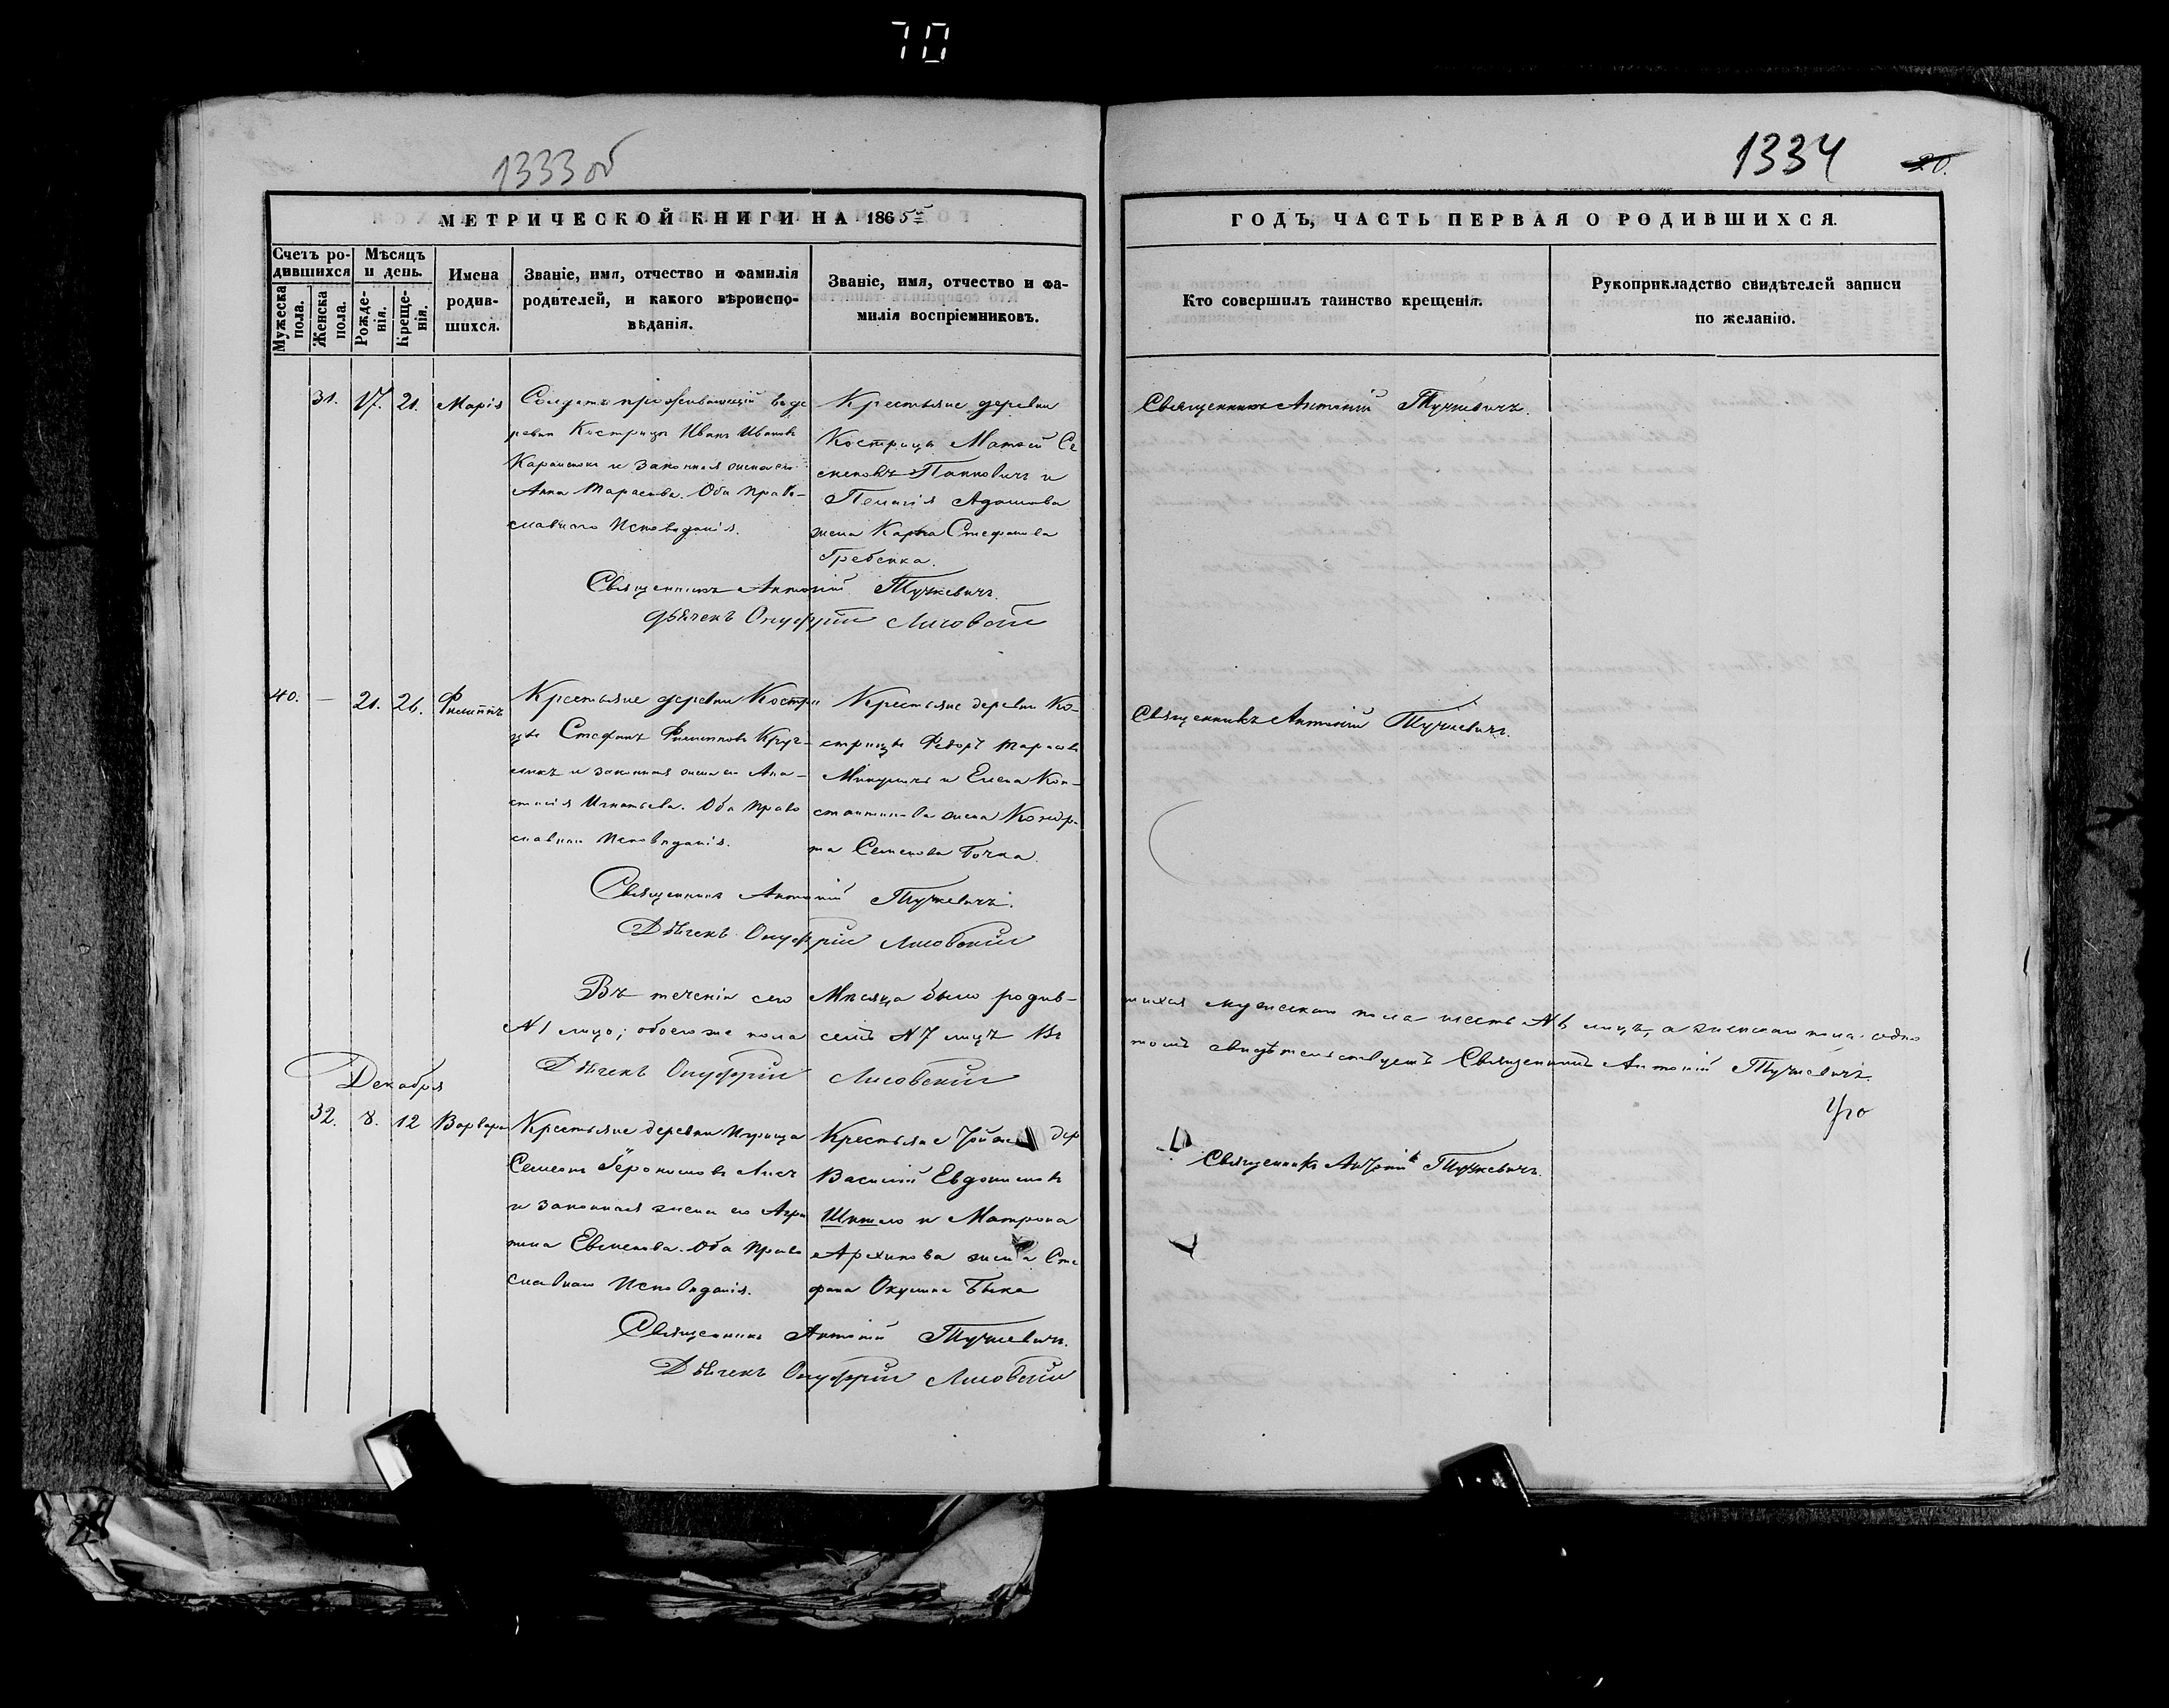 70
1333 об
1334
20.
МЕТРИЧЕСКОЙ КНИГИ НА 1865
ГОДЪ, ЧАСТЬ ПЕРВАЯ О РОДИВШИХСЯ.
Счетъ ро-
дившихся
Мужеска
пола.
Женска
пола.
Мѣсяцъ
и день.
Рожде-
нія.
Креще-
нія.
Имена
родив-
шихся.
Званіе, имя, отчество и фамилія
родителей, и какого вѣроиспо-
вѣданія.
Званіе, имя, отчество и фа-
милія воспріемниковъ.
Кто совершилъ таинство крещенія.
Рукоприкладство свидѣтелей записи
по желанію.
31. 17. 21. Марія
Солдатъ проживающій въ де
ревни Кострицъ Иванъ Ивановъ
и законная жена его
Анна Тарасова. Оба Право-
славнаго Исповѣданія.
Крестьяне деревни
Кострицы Матѳей Се
меновъ и
Пелагія Адамова
жена Карпа Стефанова
Гребенка.
Священникъ Антоній Тучкевичъ.
Священникъ Антоній Тучкевичъ.
Дьячекъ Онуфрій Лисовскій
40. — 21. 26. Филиппъ
Крестьяне деревни Костри
цы Стефанъ Филипповъ Круг-
ликъ и законная жена его Ана-
стасія Игнатьева. Оба Право
славнаго Исповѣданія.
Крестьяне деревни Ко-
стрицы Ѳедоръ Тарасовъ
Микуличъ и Елена Кон-
стантинова жена Кондра-
та Семенова Бочка.
Священникъ Антоній Тучкевичъ.
Священникъ Антоній Тучкевичъ.
Дьячекъ Онуфрій Лисовскій
Въ теченіи сего Мѣсяца было родив-
шихся мужескаго пола шесть N 6 лицъ, а женскаго пола одно
N 1 лицо; обоего же пола семь N 7 лицъ Въ
томъ свидѣтельствуетъ Священникъ Антоній Тучкевичъ.
Дьячекъ Онуфрій Лисовскій
Декабря
32. 8. 12 Варвара
Крестьяне деревни
Семенъ Іеронимовъ Лисъ
и законная жена его Агри
пина Евменова. Оба Право
славнаго Исповѣданія.
Крестьяне дер
Василій Евдокимовъ
Шитло и Матрона
Архипова жена Сте
фана Окулича Быка
Священникъ Антоній Тучкевичъ.
Священникъ Антоній Тучкевичъ.
Дьячекъ Онуфрій Лисовскій